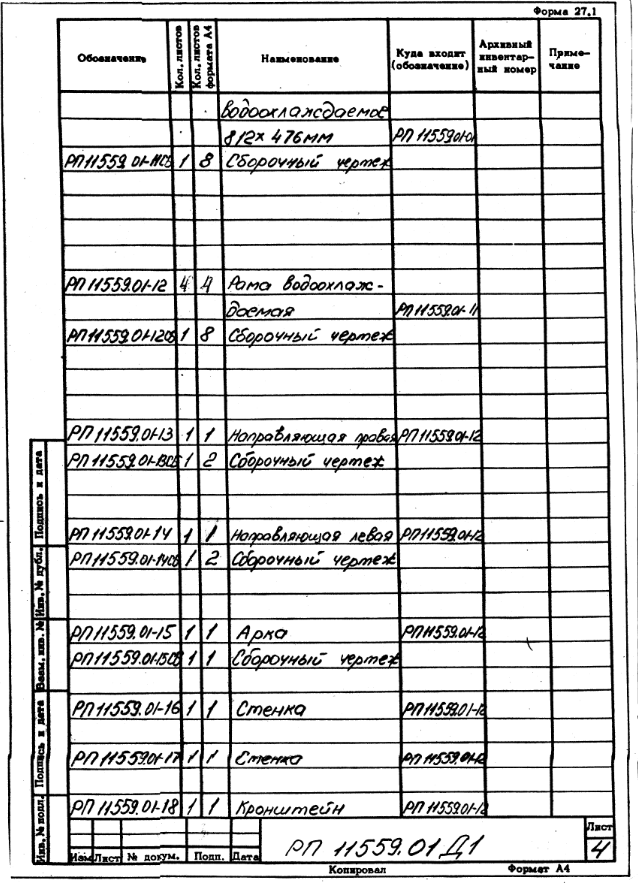 Форма 27.1
Обозначение Кол. листов Кол. листов формата А4 Наименование Куда входит (обозначение) Архивный инвентарный номер Примечание
водоохлаждаемое
812×476мм РП 11559.01-01
РП 11559.01-11СБ 1 8 Сборочный чертеж
РП 11559.01-12 4 4 Рама водоохлаж-
даемая РП 11559.01-11
РП 11559.01-12СБ 1 8 Сборочный чертеж
РП 11559.01-13 1 1 Направляющая правая РП 11559.01-12
РП 11559.01-13СБ 1 2 Сборочный чертеж
РП 11559.01-14 1 1 Направляющая левая РП 11559.01-12
РП 11559.01-14СБ 1 2 Сборочный чертеж
РП 11559.01-15 1 1 Арка РП 11559.01-12
РП 11559.01-15СБ 1 1 Сборочный чертеж
РП 11559.01-16 1 1 Стенка РП 11559.01-12
РП 11559.01-17 1 1 Стенка РП 11559.01-12
РП 11559.01-18 1 1 Кронштейн РП 11559.01-12
Инв. № подл. Подпись и дата Взам. инв. № Инв. № дубл. Подпись и дата
РП 11559.01 Д1
Лист
4
Изм Лист № докум. Подп. Дата
Копировал Формат А4